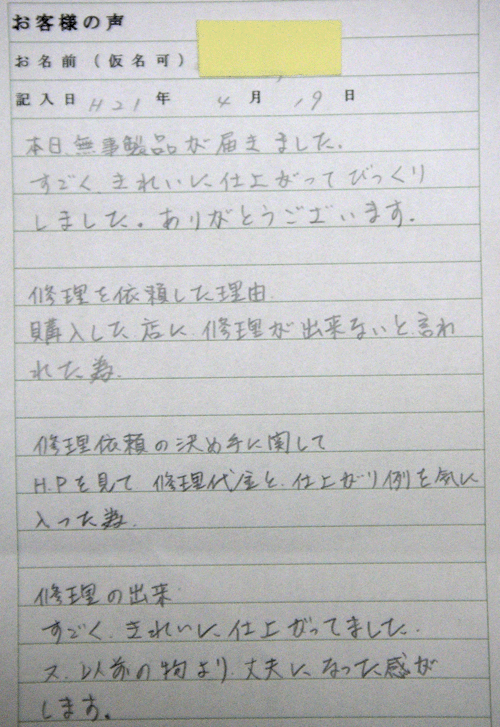 お客様の声
お名前（仮名可）
記入日 H21 年 4 月 19 日
本日、無事製品が届きました。
すごく、きれいに仕上がってびっくり
しました。ありがとうございます。
修理を依頼した理由
購入した店に、修理が出来ないと言わ
れた為。
修理依頼の決め手に関して
H.Pを見て 修理代金と、仕上がり例を気に
入った為。
修理の出来
すごく、きれいに、仕上がってました。
又、以前の物より、丈夫に、なった感が
します。